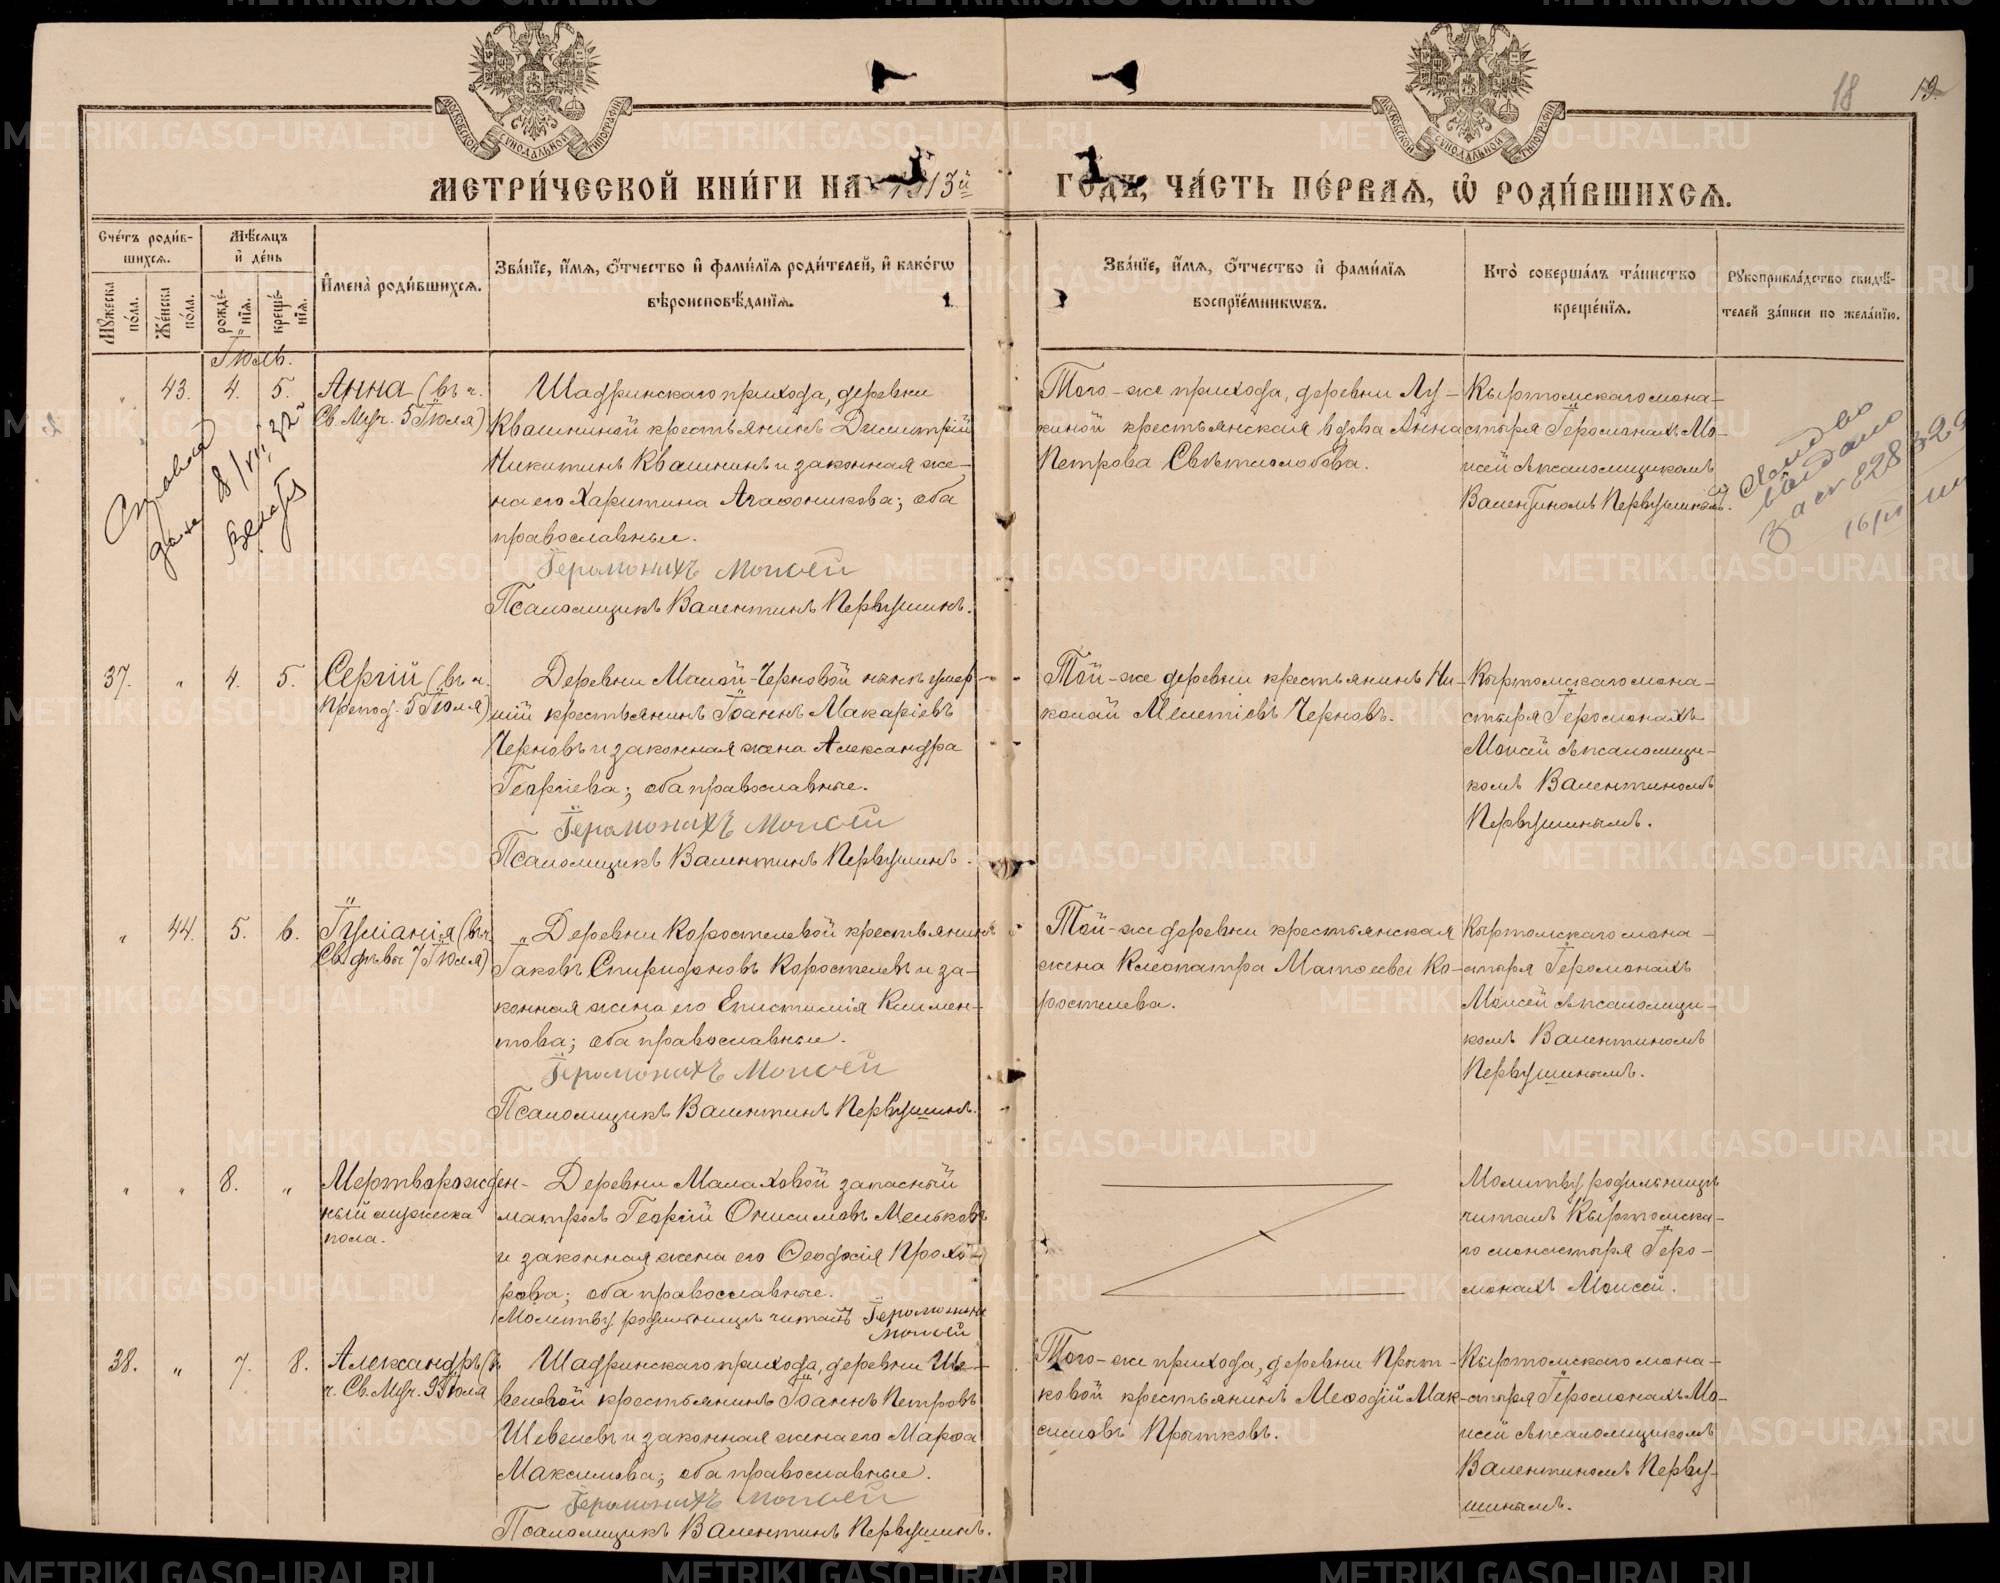 18
19
МОСКОВСКОЙ СѴНОДАЛЬНОЙ ТИПОГРАФІИ
МОСКОВСКОЙ СѴНОДАЛЬНОЙ ТИПОГРАФІИ
МЕТРИ́ЧЕСКОЙ КНИ́ГИ НА 1913й
ГОДЪ, ЧА́СТЬ ПЕ́РВАЯ, Ѡ҆ РОДИ́ВШИХСЯ.
Сче́тъ роди́в-
шихся.
Мѣ́сяцъ
и҆ де́нь
Му́жеска по́ла.
Же́нска по́ла.
рожде́-нїя.
креще́-нїя.
И҆мена̀ роди́вшихся.
Зва́нїе, и҆́мя, ѻ҆́тчество и҆ фами́лїя роди́телей, и҆ како́гѡ
вѣроисповѣ́данїя.
Зва́нїе, и҆́мя, ѻ҆́тчество и҆ фами́лїя
воспрїе́мникѡвъ.
Кто̀ соверша́лъ та́инство
креще́нїя.
Рукоприкла́дство свидѣ́-
телей за́писи по жела́нїю.
Іюль.
43. 4. 5. Анна (въ ч.
Св. Муч. 5 Іюля)
Шадринскаго прихода, деревни
Квашниной крестьянинъ Димитрій
Никитинъ Квашнинъ и законная же-
на его Харитина Агафоникова; оба
православные.
Іеромонахъ Моисей
Псаломщикъ Валентинъ Первушинъ.
Того-же прихода, деревни Лу-
киной крестьянская вдова Анна
Петрова Свѣтлолобова.
Кыртомскаго мона-
стыря Іеромонахъ Мо-
исей съ псаломщикомъ
Валентиномъ Первушинымъ.
37. " 4. 5. Сергій (въ ч.
Препод. 5 Іюля)
Деревни Малой-Черновой нынѣ умер-
шій крестьянинъ Іоаннъ Макаріевъ
Черновъ и законная жена Александра
Георгіева; оба православные.
Іеромонахъ Моисей
Псаломщикъ Валентинъ Первушинъ.
Той-же деревни крестьянинъ Ни-
колай Мелетіевъ Черновъ.
Кыртомскаго мона-
стыря Іеромонахъ
Моисей съ псаломщи-
комъ Валентиномъ
Первушинымъ.
" 44. 5. 6. Іуліанія (въ ч.
Св. дѣвы 7 Іюля)
Деревни Коростелевой крестьянинъ
Іаковъ Спиридоновъ Коростелевъ и за-
конная жена его Епистимія Климен-
това; оба православные.
Іеромонахъ Моисей
Псаломщикъ Валентинъ Первушинъ.
Той-же деревни крестьянская
жена Клеопатра Матѳеева Ко-
ростелева.
Кыртомскаго мона-
стыря Іеромонахъ
Моисей съ псаломщи-
комъ Валентиномъ
Первушинымъ.
" " 8. " Мертворожден-
ный мужеска
пола.
Деревни Малаховой запасный
матросъ Георгій Онисимовъ Мельковъ
и законная жена его Ѳеодосія Прохо-
рова; оба православные.
Молитву родильницѣ читалъ Іеромонахъ
Моисей
Молитву родильницѣ
читалъ Кыртомска-
го монастыря Іеро-
монахъ Моисей.
38. " 7. 8. Александръ (въ
ч. Св. Муч. 9 Іюля
Шадринскаго прихода, деревни Ше-
велевой крестьянинъ Іоаннъ Петровъ
Шевелевъ и законная жена его Марѳа
Максимова; оба православные.
Іеромонахъ Моисей
Псаломщикъ Валентинъ Первушинъ.
Того-же прихода, деревни Прыт-
ковой крестьянинъ Меѳодій Мак-
симовъ Прытковъ.
Кыртомскаго мона-
стыря Іеромонахъ Мо-
исей съ псаломщикомъ
Валентиномъ Перву-
шинымъ.
METRIKI.GASO-URAL.RU